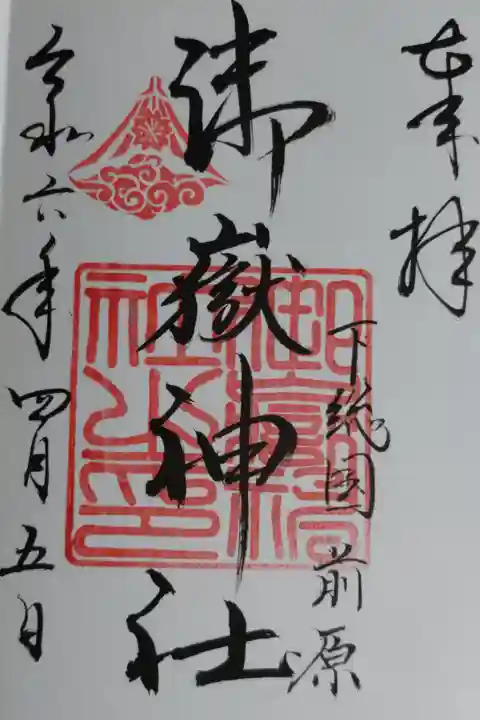 奉拝
下総国 前源
御嶽神社
令和六年四月五日